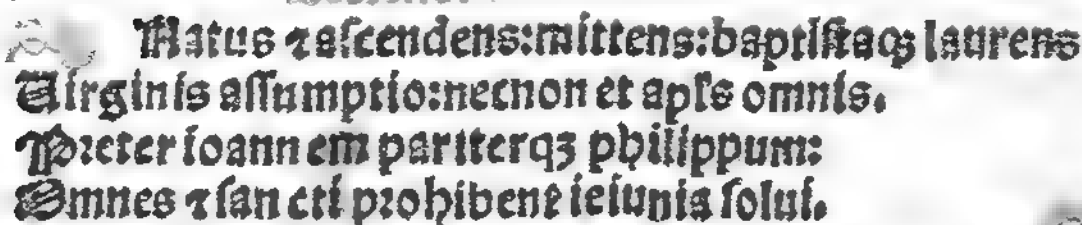 Natus ⁊ aſcendens:mittens:baptiſtaqꝫ laurens
Uirginis aſſumptio:necnon et apľs omnis.
Preter ioannem pariterqꝫ philippum:
Omnes ⁊ ſancti prohibent ieiunia ſolui.